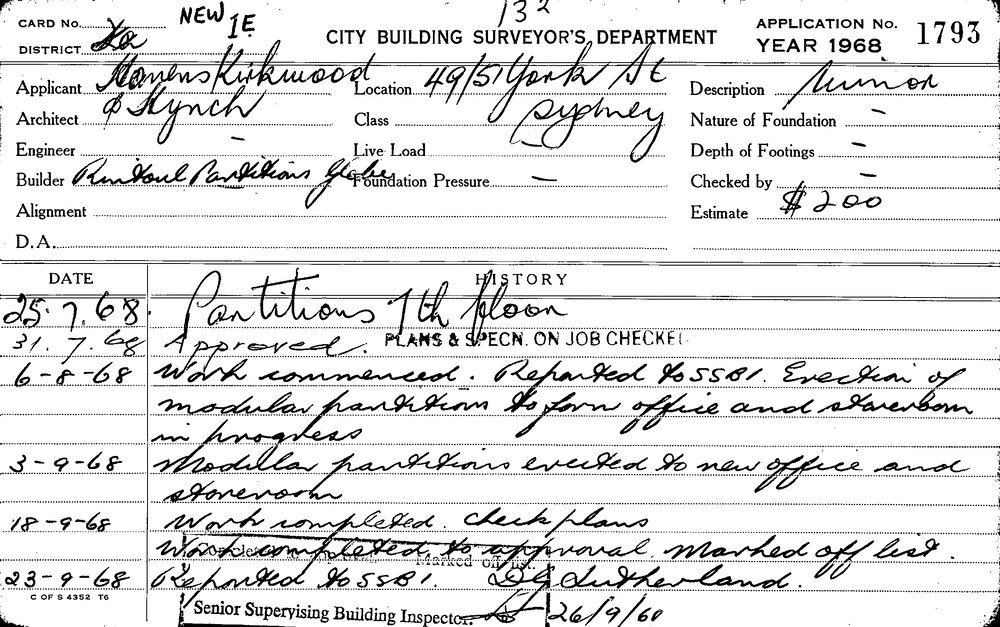 CARD No. NEW 1E 132
CITY BUILDING SURVEYOR'S DEPARTMENT
APPLICATION No. 1793
YEAR 1968
DISTRICT
Applicant Kirkwood
Location 49/51 York St
Description Minor
Architect & Lynch
Class Sydney
Nature of Foundation -
Engineer -
Live Load -
Depth of Footings -
Builder Partitions Glebe
Foundation Pressure -
Checked by -
Alignment
Estimate $200
D.A.
DATE HISTORY
25.7.68. Partitions 7th floor
31.7.68 Approved. PLANS & SPECN. ON JOB CHECKE
6-8-68 Work commenced. Reported to SSBI. Erection of
modular partitions to form office and storeroom
in progress
3-9-68 Modular partitions erected to new office and
storeroom
18-9-68 Work completed. Check plans
Work completed to approval. Marked off list.
Marked off list.
23-9-68 Reported to SSBI. Sutherland.
C OF S 4352 T6
Senior Supervising Building Inspector. 26/9/60